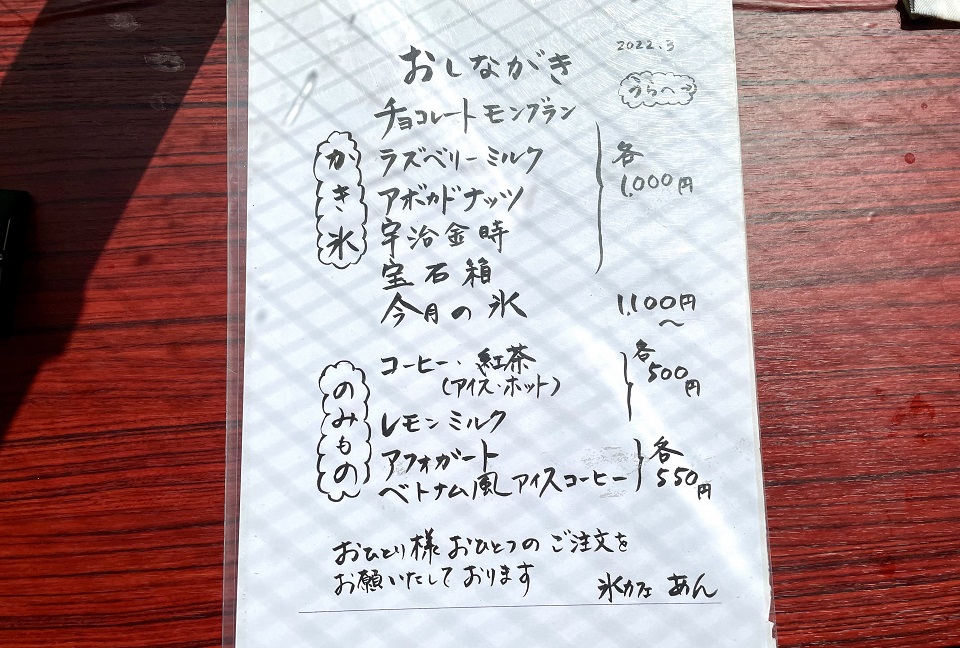 おしながき
2022.3
うらへ→
かき氷
チョコレートモンブラン
ラズベリーミルク
アボカドナッツ
宇治金時
宝石箱
各
1,000円
今月の氷
1,100円
～
のみもの
コーヒー・紅茶
(アイス・ホット)
レモンミルク
各
500
円
アフォガート
ベトナム風アイスコーヒー
各
550円
おひとり様おひとつのご注文を
お願いたしております
氷カフェ あん